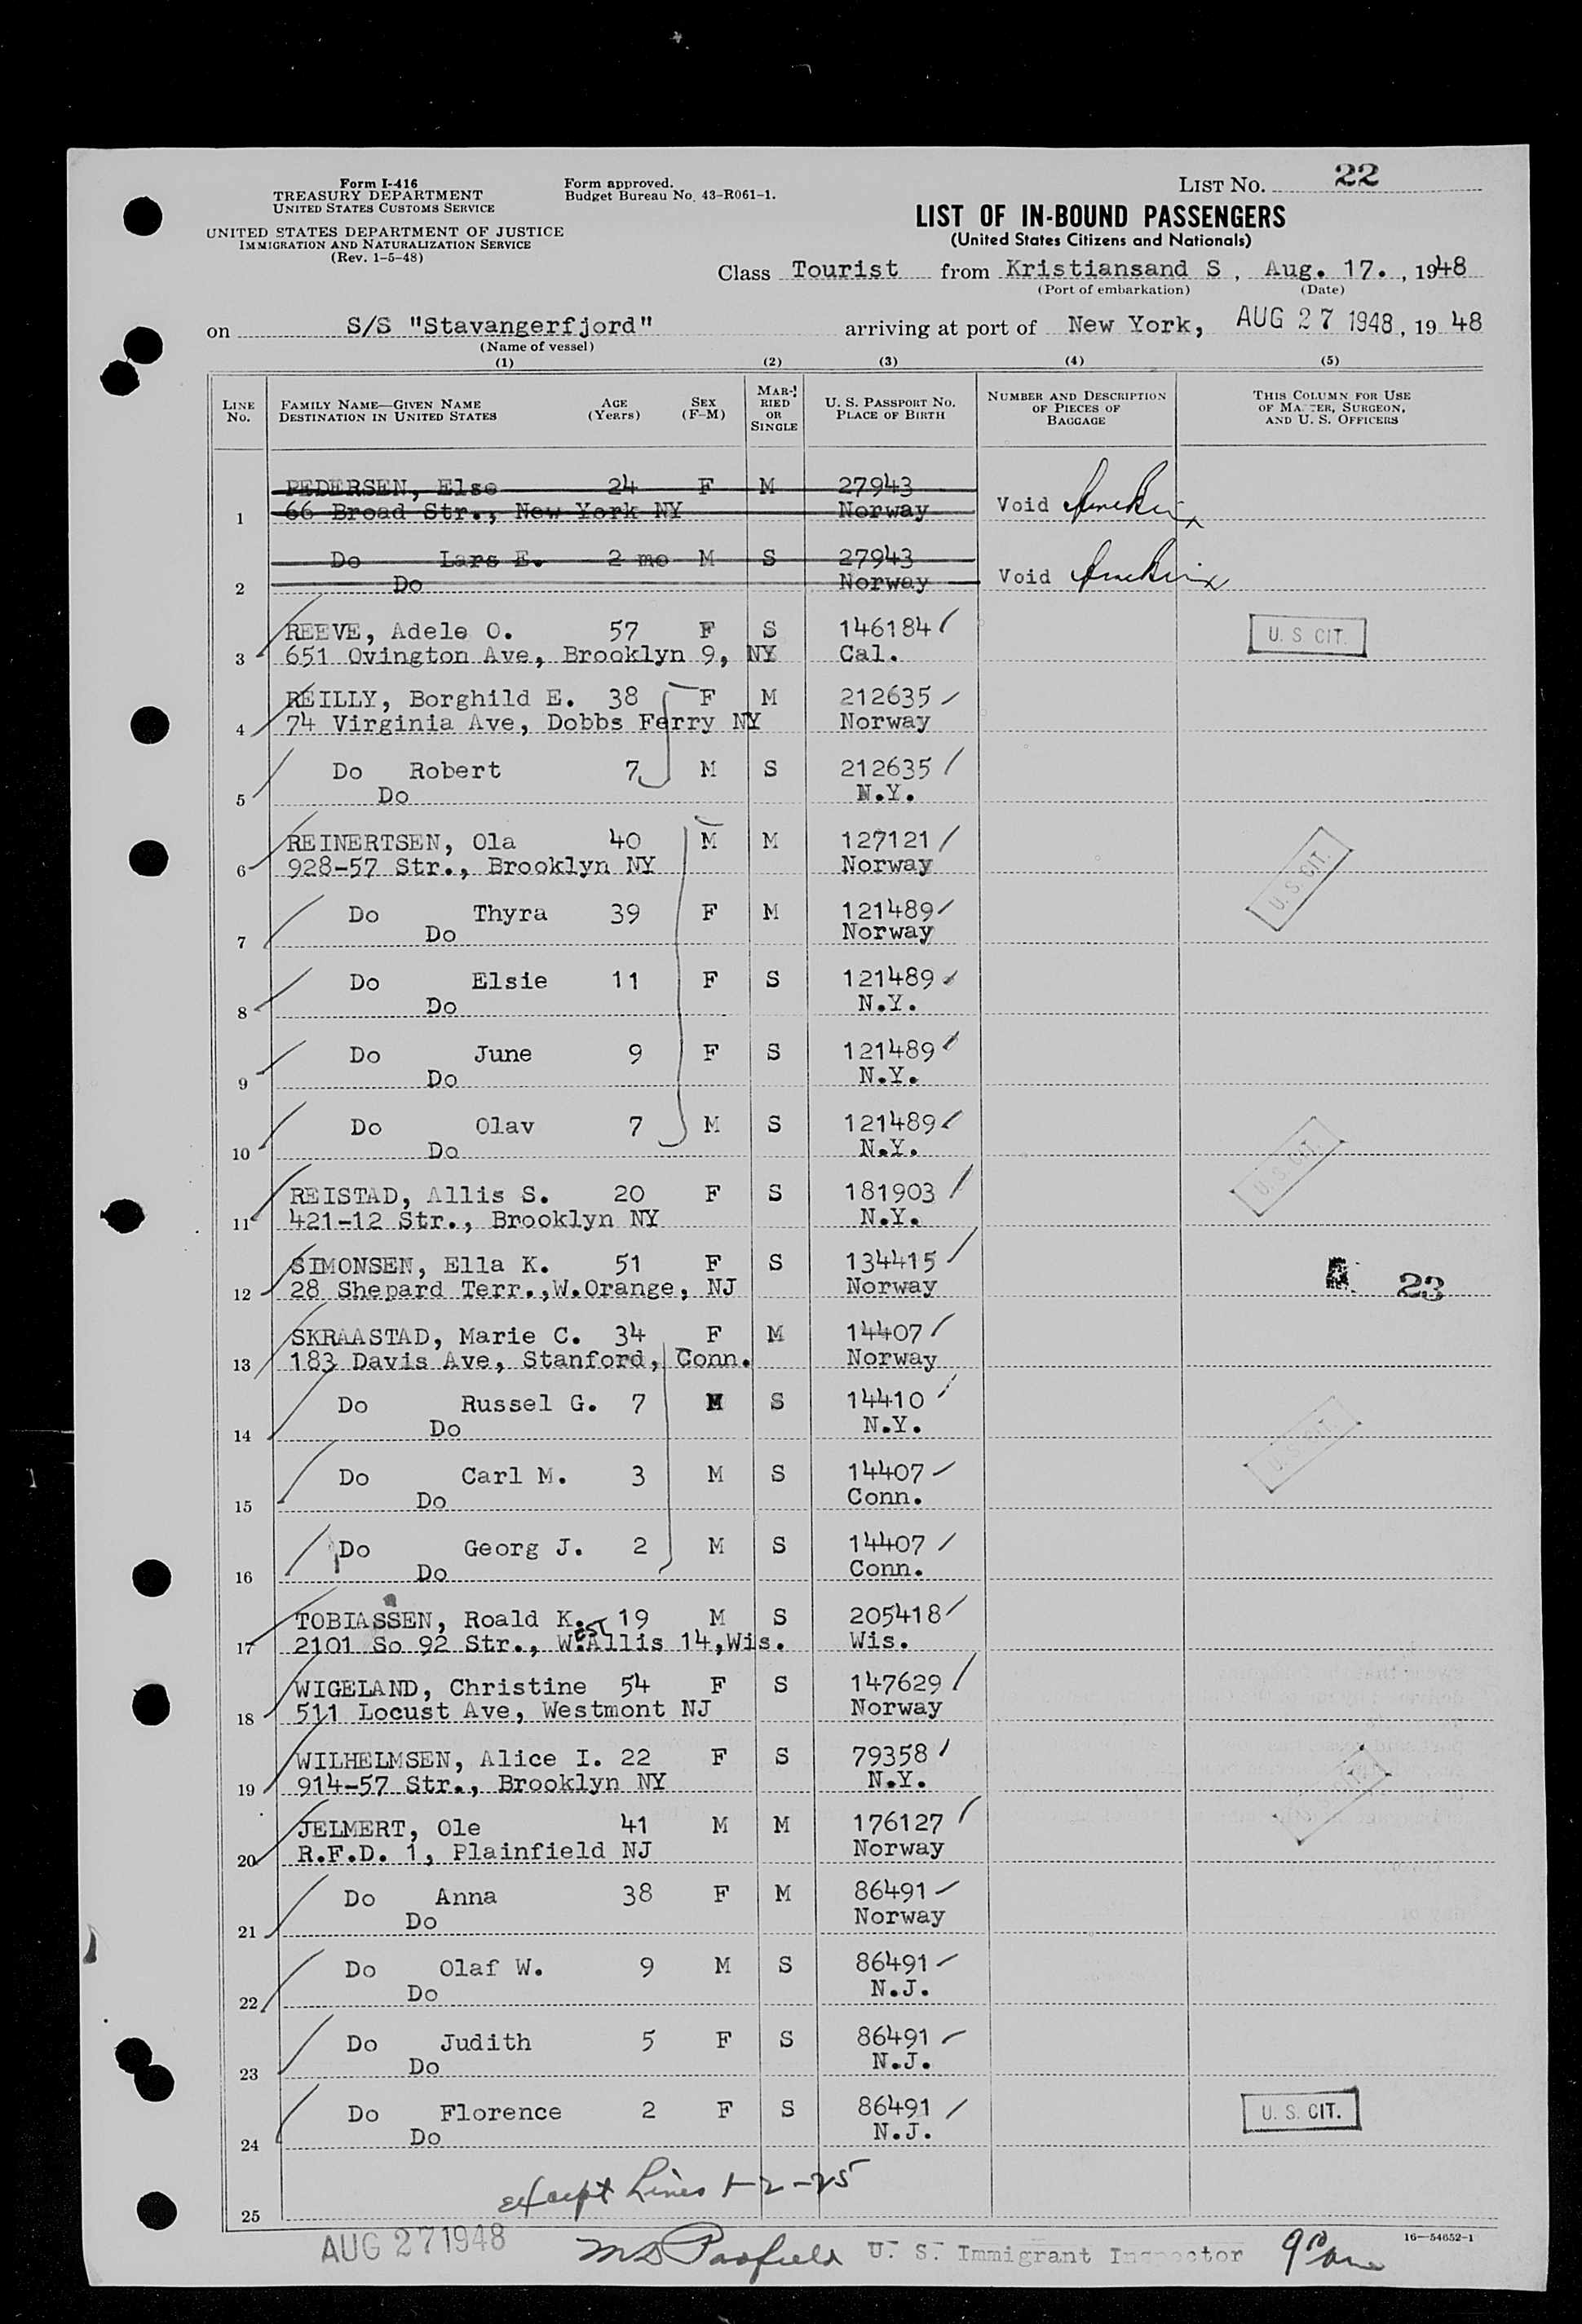 Form I-416
TREASURY DEPARTMENT
UNITED STATES CUSTOMS SERVICE
UNITED STATES DEPARTMENT OF JUSTICE
IMMIGRATION AND NATURALIZATION SERVICE
(Rev. 1-5-48)
Form approved.
Budget Bureau No. 43-R061-1.
LIST NO. 22
LIST OF IN-BOUND PASSENGERS
(United States Citizens and Nationals)
Class Tourist from Kristiansand S, Aug. 17., 1948
(Port of embarkation) (Date)
on S/S "Stavangerfjord" arriving at port of New York, AUG 27 1948, 19 48
(Name of vessel)
(1) (2) (3) (4) (5)
LINE No. FAMILY NAME—GIVEN NAME DESTINATION IN UNITED STATES AGE (Years) SEX (F-M) MARRIED OR SINGLE U. S. PASSPORT NO. PLACE OF BIRTH NUMBER AND DESCRIPTION OF PIECES OF BAGGAGE THIS COLUMN FOR USE OF MASTER, SURGEON, AND U. S. OFFICERS
PEDERSEN, Else 24 F M 27943
1 66 Broad Str., New York NY Norway Void
Do Lars E. 2 mo M S 27943
2 Do Norway Void
REEVE, Adele O. 57 F S 146184 U. S CIT.
3 651 Ovington Ave, Brooklyn 9, NY Cal.
REILLY, Borghild E. 38 F M 212635
4 74 Virginia Ave, Dobbs Ferry NY Norway
Do Robert 7 M S 212635
5 Do N.Y.
REINERTSEN, Ola 40 M M 127121
6 928-57 Str., Brooklyn NY Norway U. S. CIT.
Do Thyra 39 F M 121489
7 Do Norway
Do Elsie 11 F S 121489
8 Do N.Y.
Do June 9 F S 121489
9 Do N.Y.
Do Olav 7 M S 121489
10 Do N.Y. U. S. CIT.
REISTAD, Allis S. 20 F S 181903
11 421-12 Str., Brooklyn NY N.Y.
SIMONSEN, Ella K. 51 F S 134415
12 28 Shepard Terr.,W.Orange, NJ Norway 23
SKRAASTAD, Marie C. 34 F M 14407
13 183 Davis Ave, Stanford, Conn. Norway
Do Russel G. 7 M S 14410
14 Do N.Y. U. S. CIT.
Do Carl M. 3 M S 14407
15 Do Conn.
Do Georg J. 2 M S 14407
16 Do Conn.
TOBIASSEN, Roald K. 19 M S 205418
17 2101 So 92 Str., W.EST Allis 14,Wis. Wis.
WIGELAND, Christine 54 F S 147629
18 511 Locust Ave, Westmont NJ Norway
WILHELMSEN, Alice I. 22 F S 79358
19 914-57 Str., Brooklyn NY N.Y. CIT.
JELMERT, Ole 41 M M 176127
20 R.F.D. 1, Plainfield NJ Norway
Do Anna 38 F M 86491
21 Do Norway
Do Olaf W. 9 M S 86491
22 Do N.J.
Do Judith 5 F S 86491
23 Do N.J.
Do Florence 2 F S 86491 U. S. CIT.
24 Do N.J.
except Lines 1-2-25
25
16—54652-1
AUG 27 1948 U. S. Immigrant Inspector